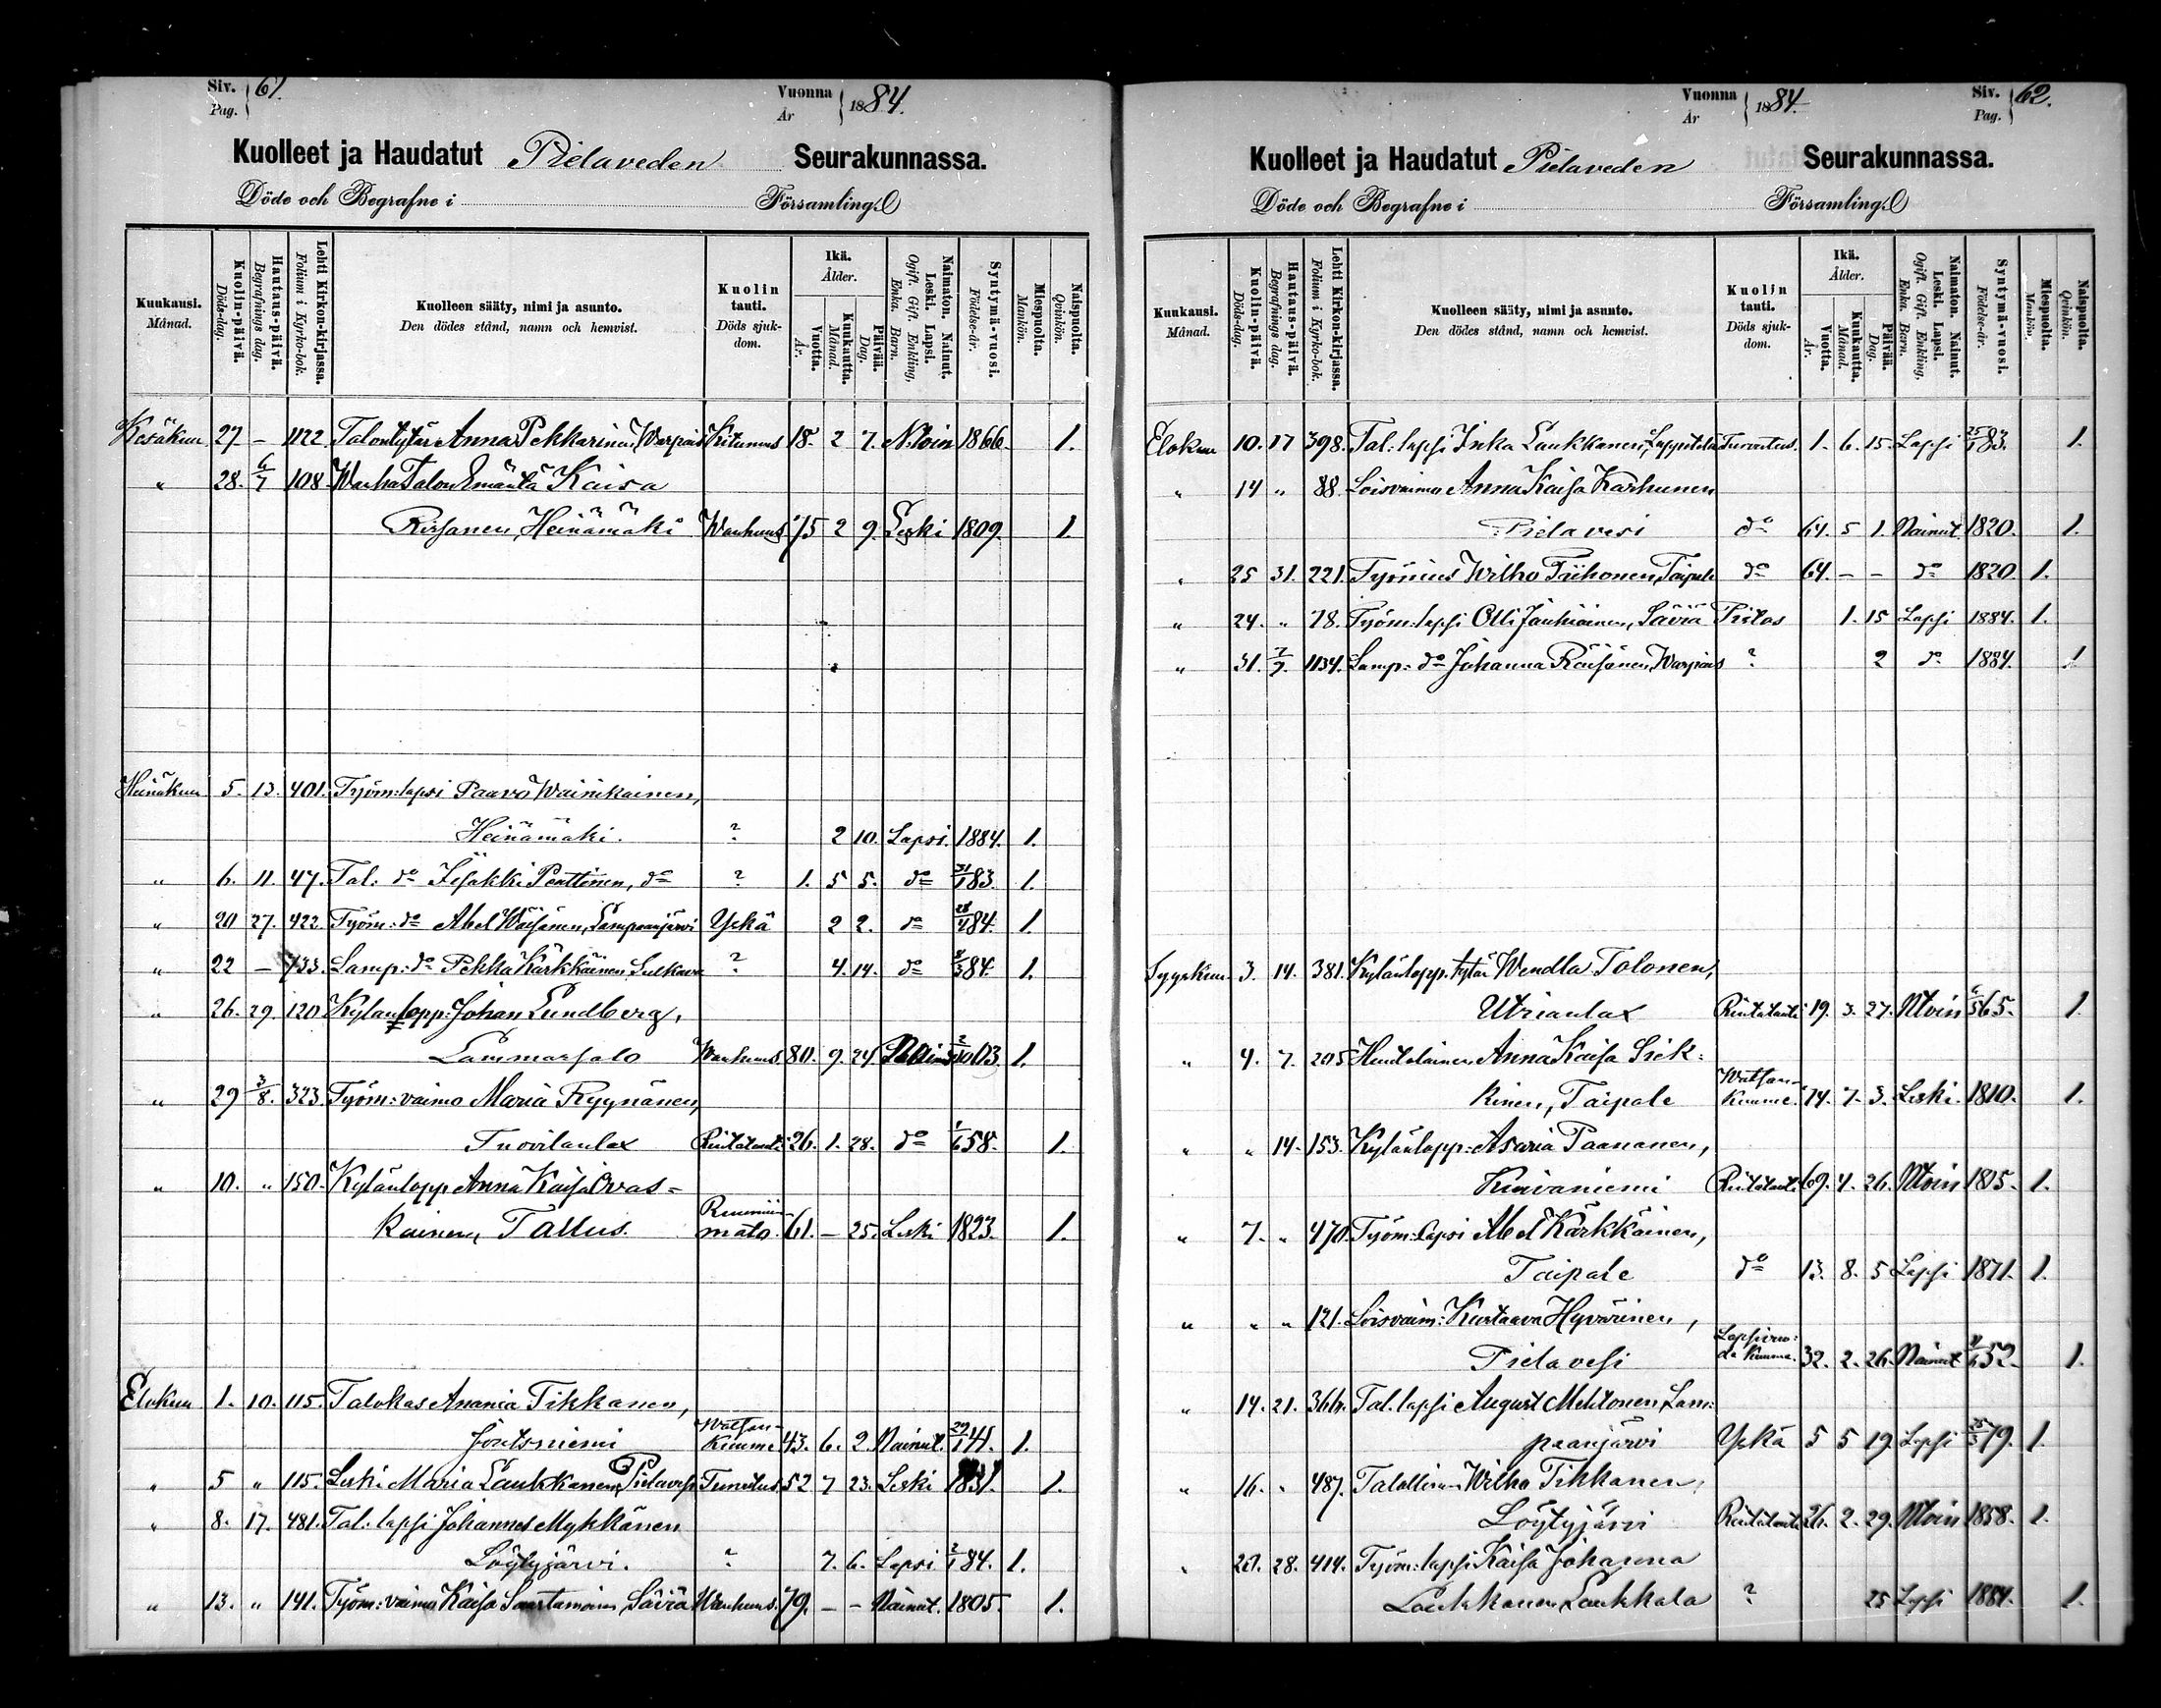 Siv. Pag. 61. Vuonna År 1884.
Kuolleet ja Haudatut Pielaveden Seurakunnassa.
Döde och Begrafne i Församling.
Kuukausi. Månad. Kuolin-päivä. Döds-dag. Hautaus-päivä. Begrafnings dag. Lehti Kirkon-kirjassa. Folium i Kyrko-bok. Kuolleen sääty, nimi ja asunto. Den dödes stånd, namn och hemvist. Kuolin tauti. Döds sjuk-dom. Ikä. Ålder. Vuotta. År. Kuukautta. Månad. Päivää. Dag. Naimaton. Nainut. Leski. Lapsi. Ogift. Gift. Enkling, Enka. Barn. Syntymä-vuosi. Födelse-år. Miespuolta. Mankön. Naispuolta. Qvinkön.
Kesäkuu 27 – 1122 Talontytär Anna Pekkarinen, Warpais Kitumus 18. 2 7. N:toin 1866. 1.
" 28. 6/7 108 Wanha Talon Emäntä Kaisa
Rissanen, Heinämäki Wanhuus 75 2 9. Leski 1809. 1.
Heinäkuu 5. 13. 401. Työm: lapsi Paavo Wainikainen,
Heinämäki. ? 2 10. Lapsi. 1884. 1.
" 6. 11. 47. Tal: do Iisakki Penttinen, do ? 1. 5 5. do 31/1 83. 1.
" 20 27. 422. Työm: do Abel Wäisänen, Lampaanjärvi Yskä 2 2. do 28/4 84. 1.
" 22 – 733. Lamp: do Pekka Kärkkäinen, Sulkava ? 4. 14. do 8/3 84. 1.
" 26. 29. 120. Kylänlopp: Johan Lundberg,
Lammassalo Wanhuus 80. 9. 24 1803. 1.
" 29 3/8. 323. Työm: vaimo Maria Ryynänen,
Tuovilanlax Rintatauti 26. 1. 28. do 1/6 58. 1.
" 10. " 150. Kylänlopp Anna Kaisa Ovas-
kainen, Tallus. mato. 61. – 25. Leski 1823. 1.
Elokuu 1. 10. 115. Talokas Anania Tikkanen,
Jontsniemi Watsan-kuume 43. 6. 2. Nainut. 29/1 41. 1.
" 5 " 115. Leski Maria Laukkanen, Pielavesi Turvotus. 52 7 23. Leski 1831. 1.
" 8. 17. 481. Tal: lapsi Johannes Mykkänen
Löytyjärvi. ? 7. 6. Lapsi 2/1 84. 1.
" 13. " 141. Työm: vaimo Kaisa Saastamoinen, Säviä Wanhuus. 79. – – Nainut. 1805. 1.
Vuonna År 1884. Siv. Pag. 62.
Kuolleet ja Haudatut Pielaveden Seurakunnassa.
Döde och Begrafne i Församling.
Kuukausi. Månad. Kuolin-päivä. Döds-dag. Hautaus-päivä. Begrafnings dag. Lehti Kirkon-kirjassa. Folium i Kyrko-bok. Kuolleen sääty, nimi ja asunto. Den dödes stånd, namn och hemvist. Kuolin tauti. Döds sjuk-dom. Ikä. Ålder. Vuotta. År. Kuukautta. Månad. Päivää. Dag. Naimaton. Nainut. Leski. Lapsi. Ogift. Gift. Enkling, Enka. Barn. Syntymä-vuosi. Födelse-år. Miespuolta. Mankön. Naispuolta. Qvinkön.
Elokuu 10. 17 398. Tal: lapsi Inka Laukkanen, Turvotus. 1. 6. 15. Lapsi 25/1 83. 1.
" 14 " 88. Loisvaimo Anna Kaisa Karhunen
Pielavesi do 64. 5 1. Nainut. 1820. 1.
" 25 31. 221. Työmies Wilho Tiihonen, Taipale do 64. – – do 1820. 1.
" 24. " 78. Työm: lapsi Olli Jauhiainen, Säviä Pistos 1. 15 Lapsi 1884. 1.
" 31. 7/9. 1134. Lamp: do Johanna Räisänen, Warpais ? 2 do 1884. 1
Syyskuu 3. 14. 381. Kylänlopp. tytär Wendla Tolonen,
Utrianlax Rintatauti 19. 3. 27. N:toin 6/5 65. 1.
" 4. 7. 205 Huutolainen Anna Kaisa Siek:
kinen, Taipale Watsan-kuume. 74. 7. 3. Leski. 1810. 1.
" " 14. 153. Kylänlopp: Asaria Paananen,
Kuivaniemi Rintatauti 69. 4. 26. N:toin 1815. 1.
" 7. " 470. Työm: lapsi Abel Kärkkäinen,
Taipale do 13. 8. 5 Lapsi 1871. 1.
" " " 121. Loisvaim: Kustaava Hyvärinen,
Pielavesi Lapsivuo:de kuume. 32. 2. 26. Nainut 52. 1.
" 14. 21. 366. Tal. lapsi August Mehtonen, Lam:
paanjärvi Yskä 5 5 19. Lapsi 25/3 79. 1.
" 16. " 487. Talollinen Wilho Tikkanen,
Löytyjärvi Rintatauti 26. 2. 29. N:toin 1858. 1.
" 20. 28. 414. Työm: lapsi Kaisa Johanna
Laukkanen, Laukkala ? 25 Lapsi 1884. 1.